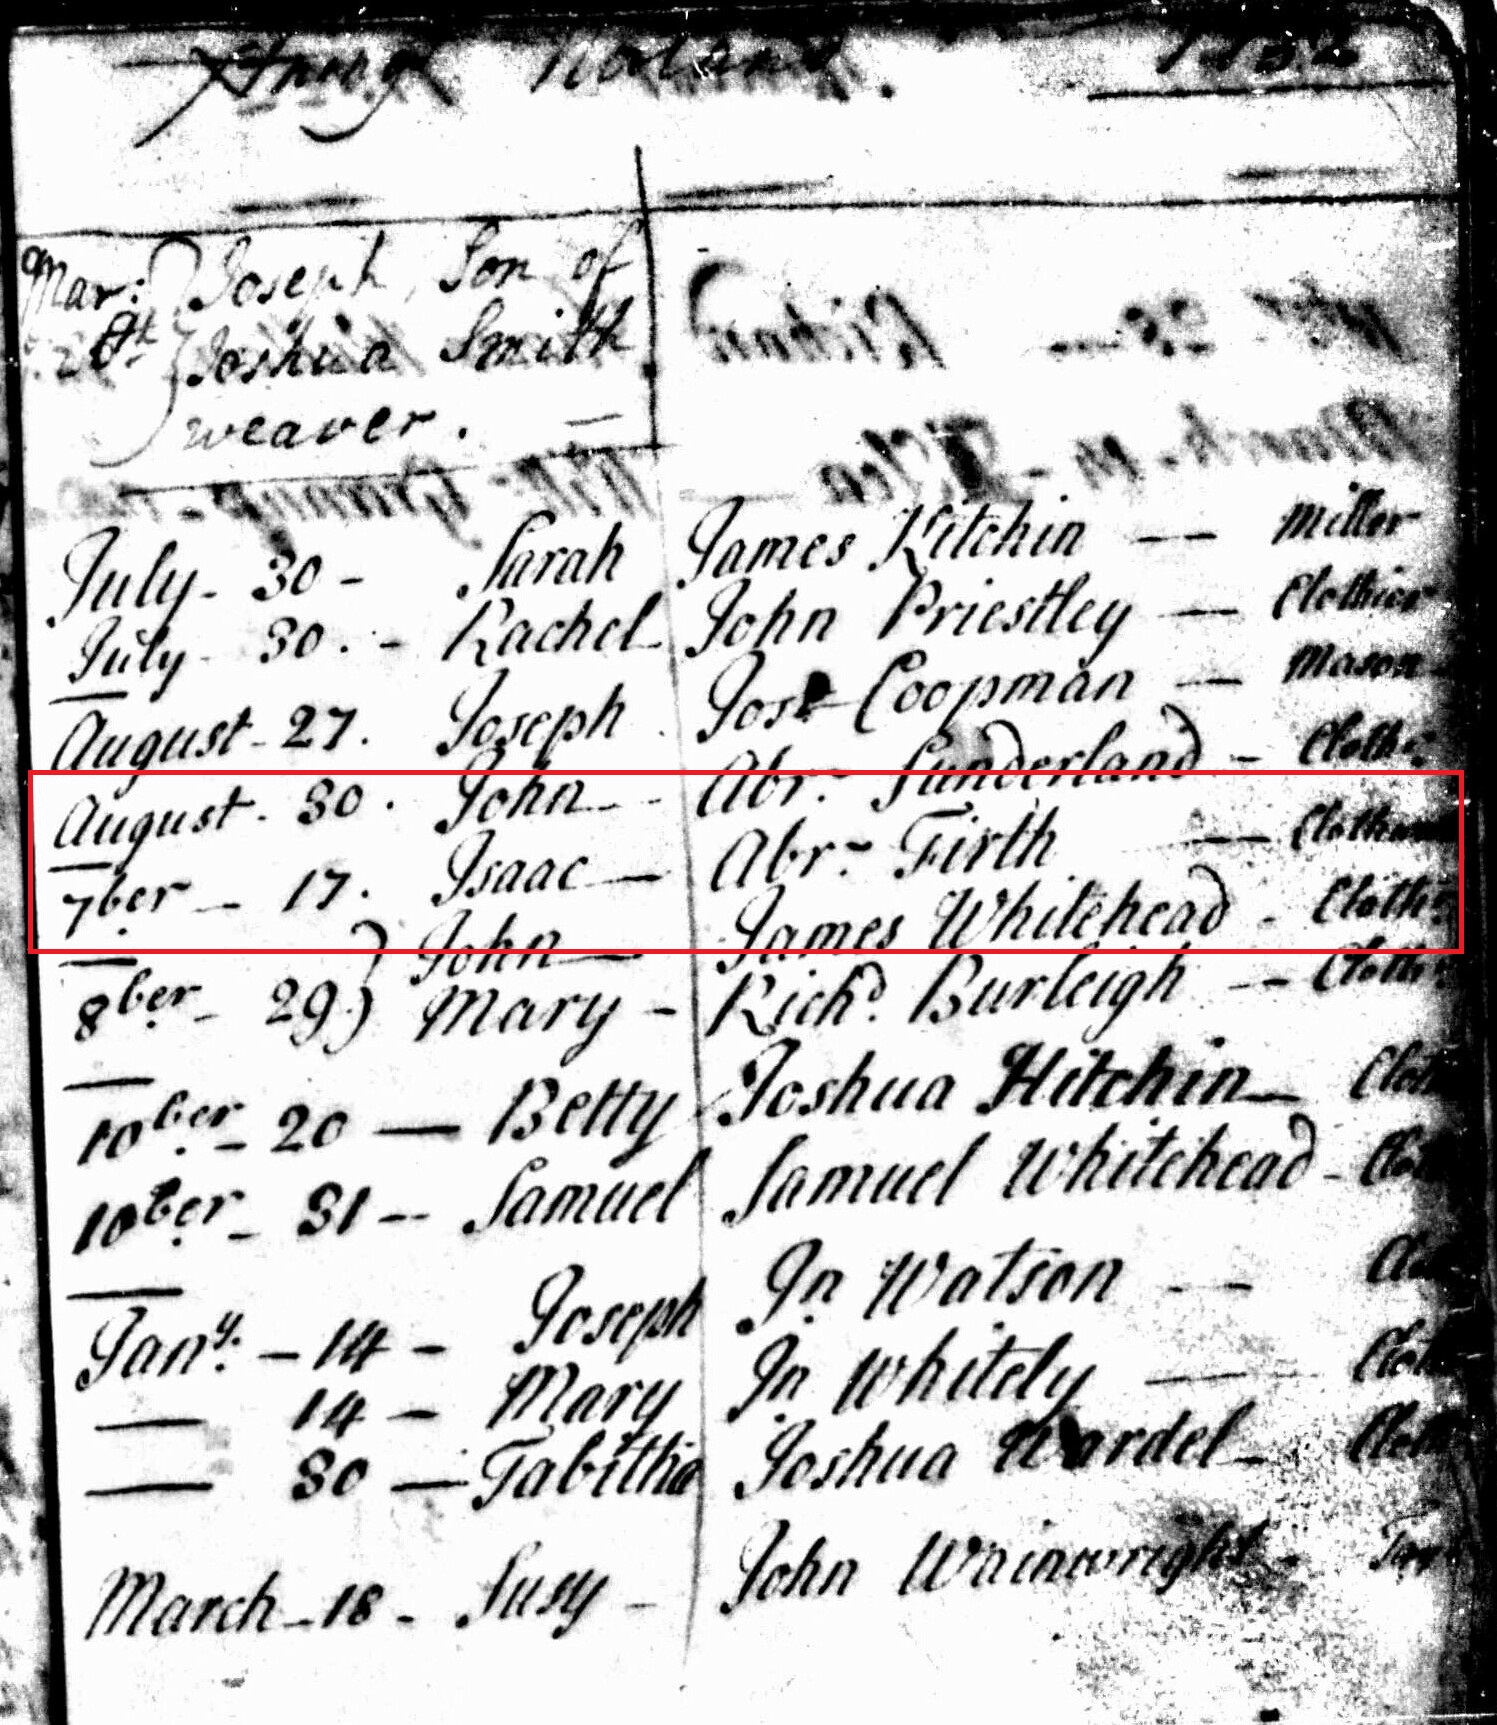 Mar: Joseph, Son of
Joshua Smith
weaver.
July - 30 - Sarah James Kitchin — Miller
July - 30. - Rachel John Priestley — Clothier
August - 27. Joseph Coopman — Mason
August - 30. John - Abr: Sunderland - Cloth:
7ber - 17. Isaac — Abr: Firth —
John — James Whitehead - Cloth:
8ber - 29 Mary - Richd. Burleigh — Cloth:
10ber - 20 — Betty Joshua Hitchin —
10ber - 31 -- Samuel Samuel Whitehead -
Jany: - 14 - Joseph Jn Watson —
— 14 - Mary Jn Whitely —
— 30 — Tabitha Joshua Wardel -
March - 18 - Susy - John Wainwright -